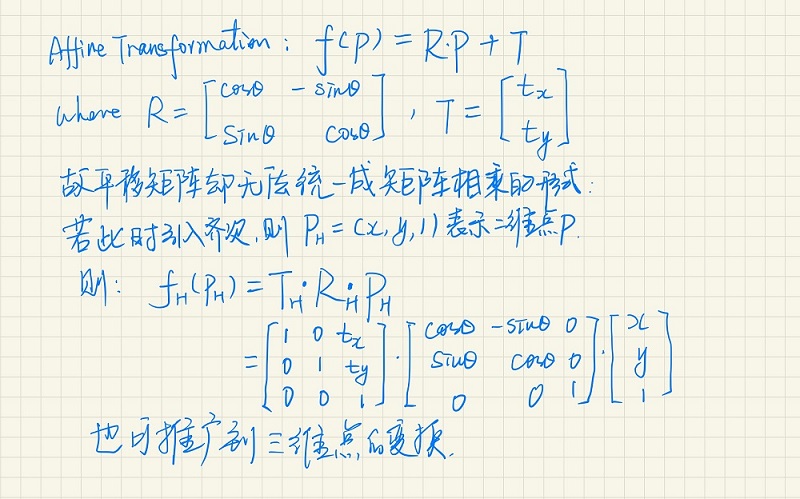 Affine Transformation: f(p) = R·P + T
where R = [cosθ -sinθ; sinθ cosθ], T = [tx; ty]
故平移矩阵却无法统一成矩阵相乘的形式:
若此时引入齐次,则 PH = (x, y, 1) 表示二维点P.
则: fH(PH) = TH·RH·PH
= [1 0 tx; 0 1 ty; 0 0 1]·[cosθ -sinθ 0; sinθ cosθ 0; 0 0 1]·[x; y; 1]
也可推广到三维点的变换.